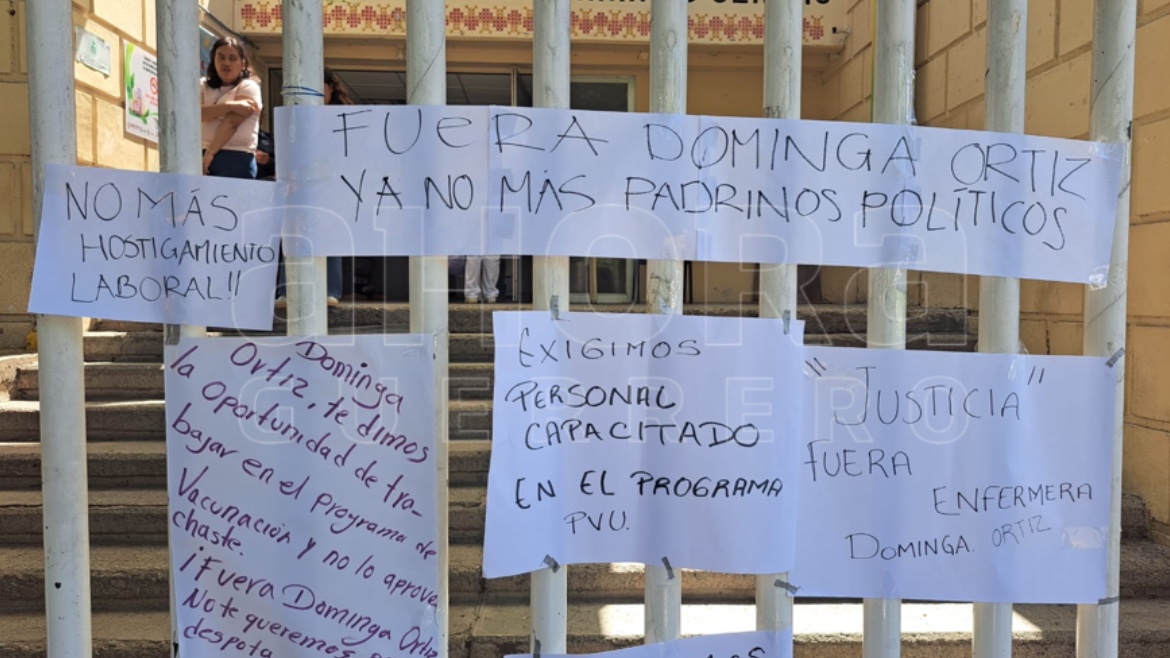 FUERA DOMINGA ORTIZ
YA NO MÁS PADRINOS POLÍTICOS
NO MÁS
HOSTIGAMIENTO
LABORAL!!
Dominga
Ortiz, te dimos
la oportunidad de tra-
bajar en el programa de
Vacunación y no lo aprove
chaste.
¡Fuera Dominga Ortiz
No te queremos
despota
EXIGIMOS
PERSONAL
CAPACITADO
EN EL PROGRAMA
PVU.
"JUSTICIA"
FUERA
ENFERMERA
DOMINGA. ORTIZ
aHORa
GUERRERO